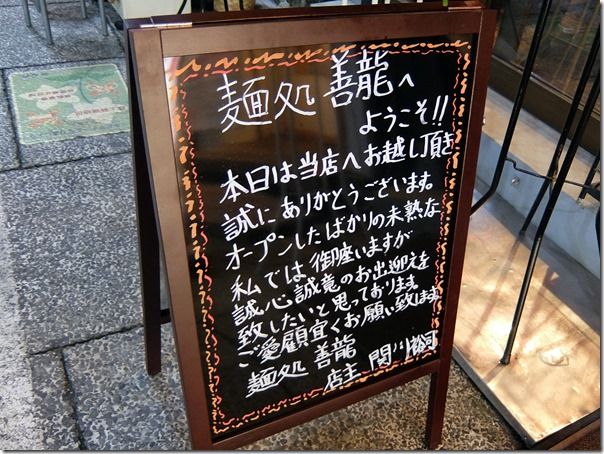 麺処 善龍へ
ようこそ!!
本日は当店へお越し頂き
誠にありがとうございます。
オープンしたばかりの未熟な
私では御座いますが
誠心誠意のお出迎えを
致したいと思っております。
ご愛顧宜くお願い致します
麺処 善龍
店主 関川